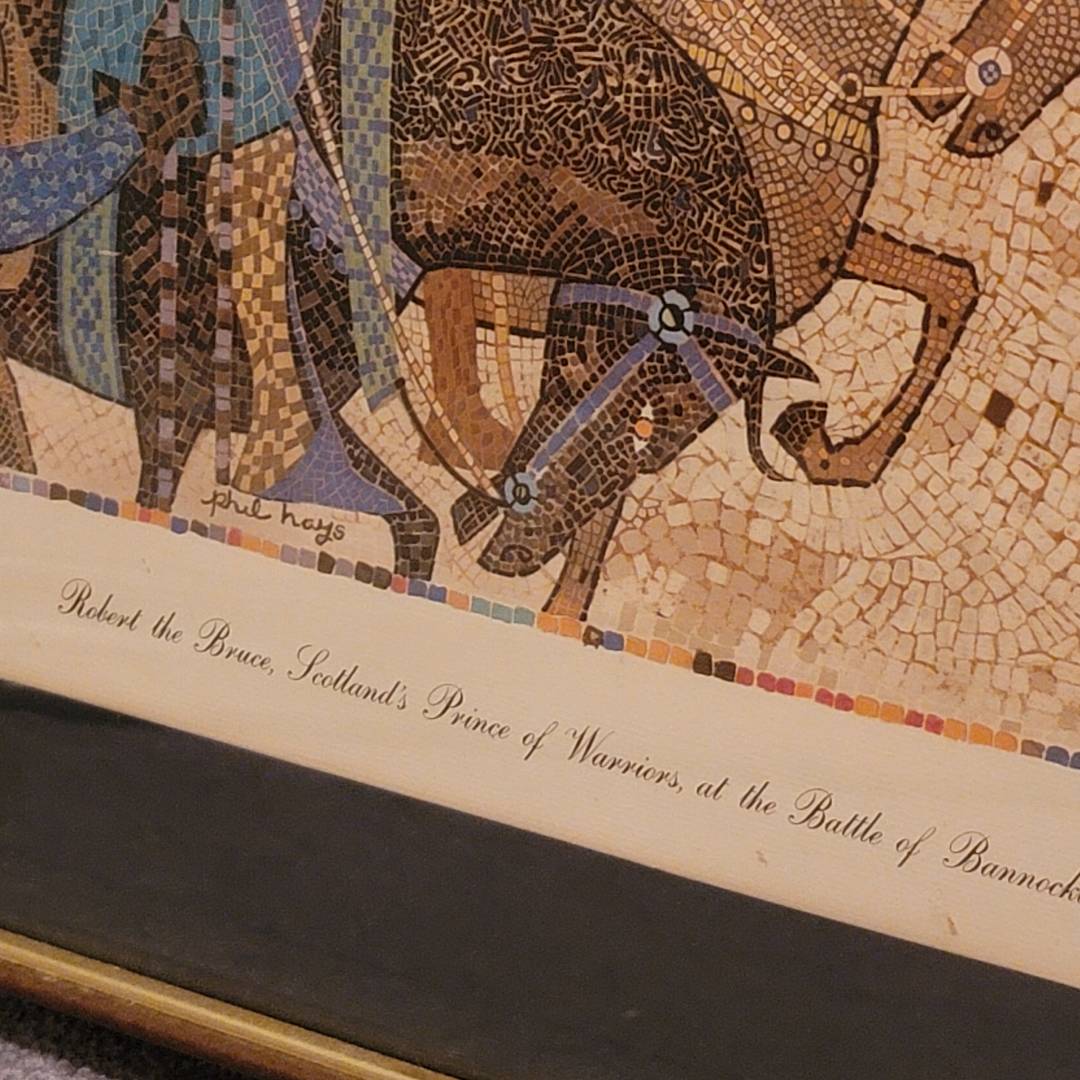 phil hays
Robert the Bruce, Scotland's Prince of Warriors, at the Battle of Bannock